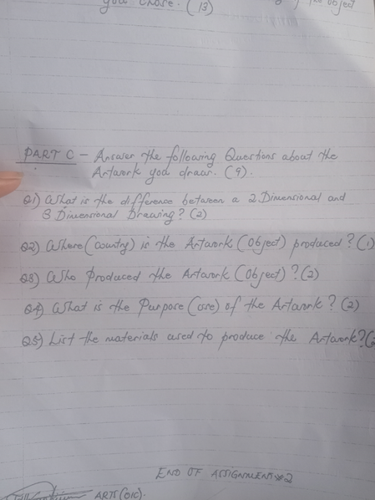 you chose. (13)
object
PART C - Answer the following Questions about the
Artwork you draw. (9).
Q1) What is the difference between a 2 Dimensional and
3 Dimensional Drawing? (2)
Q2) Where (country) is the Artwork (Object) produced? (1)
Q3) Who Produced the Artwork (Object)? (2)
Q4) What is the Purpose (use) of the Artwork? (2)
Q5) List the materials used to produce the Artwork? (2
END OF ASSIGNMENT #2
ARTS (OIC).